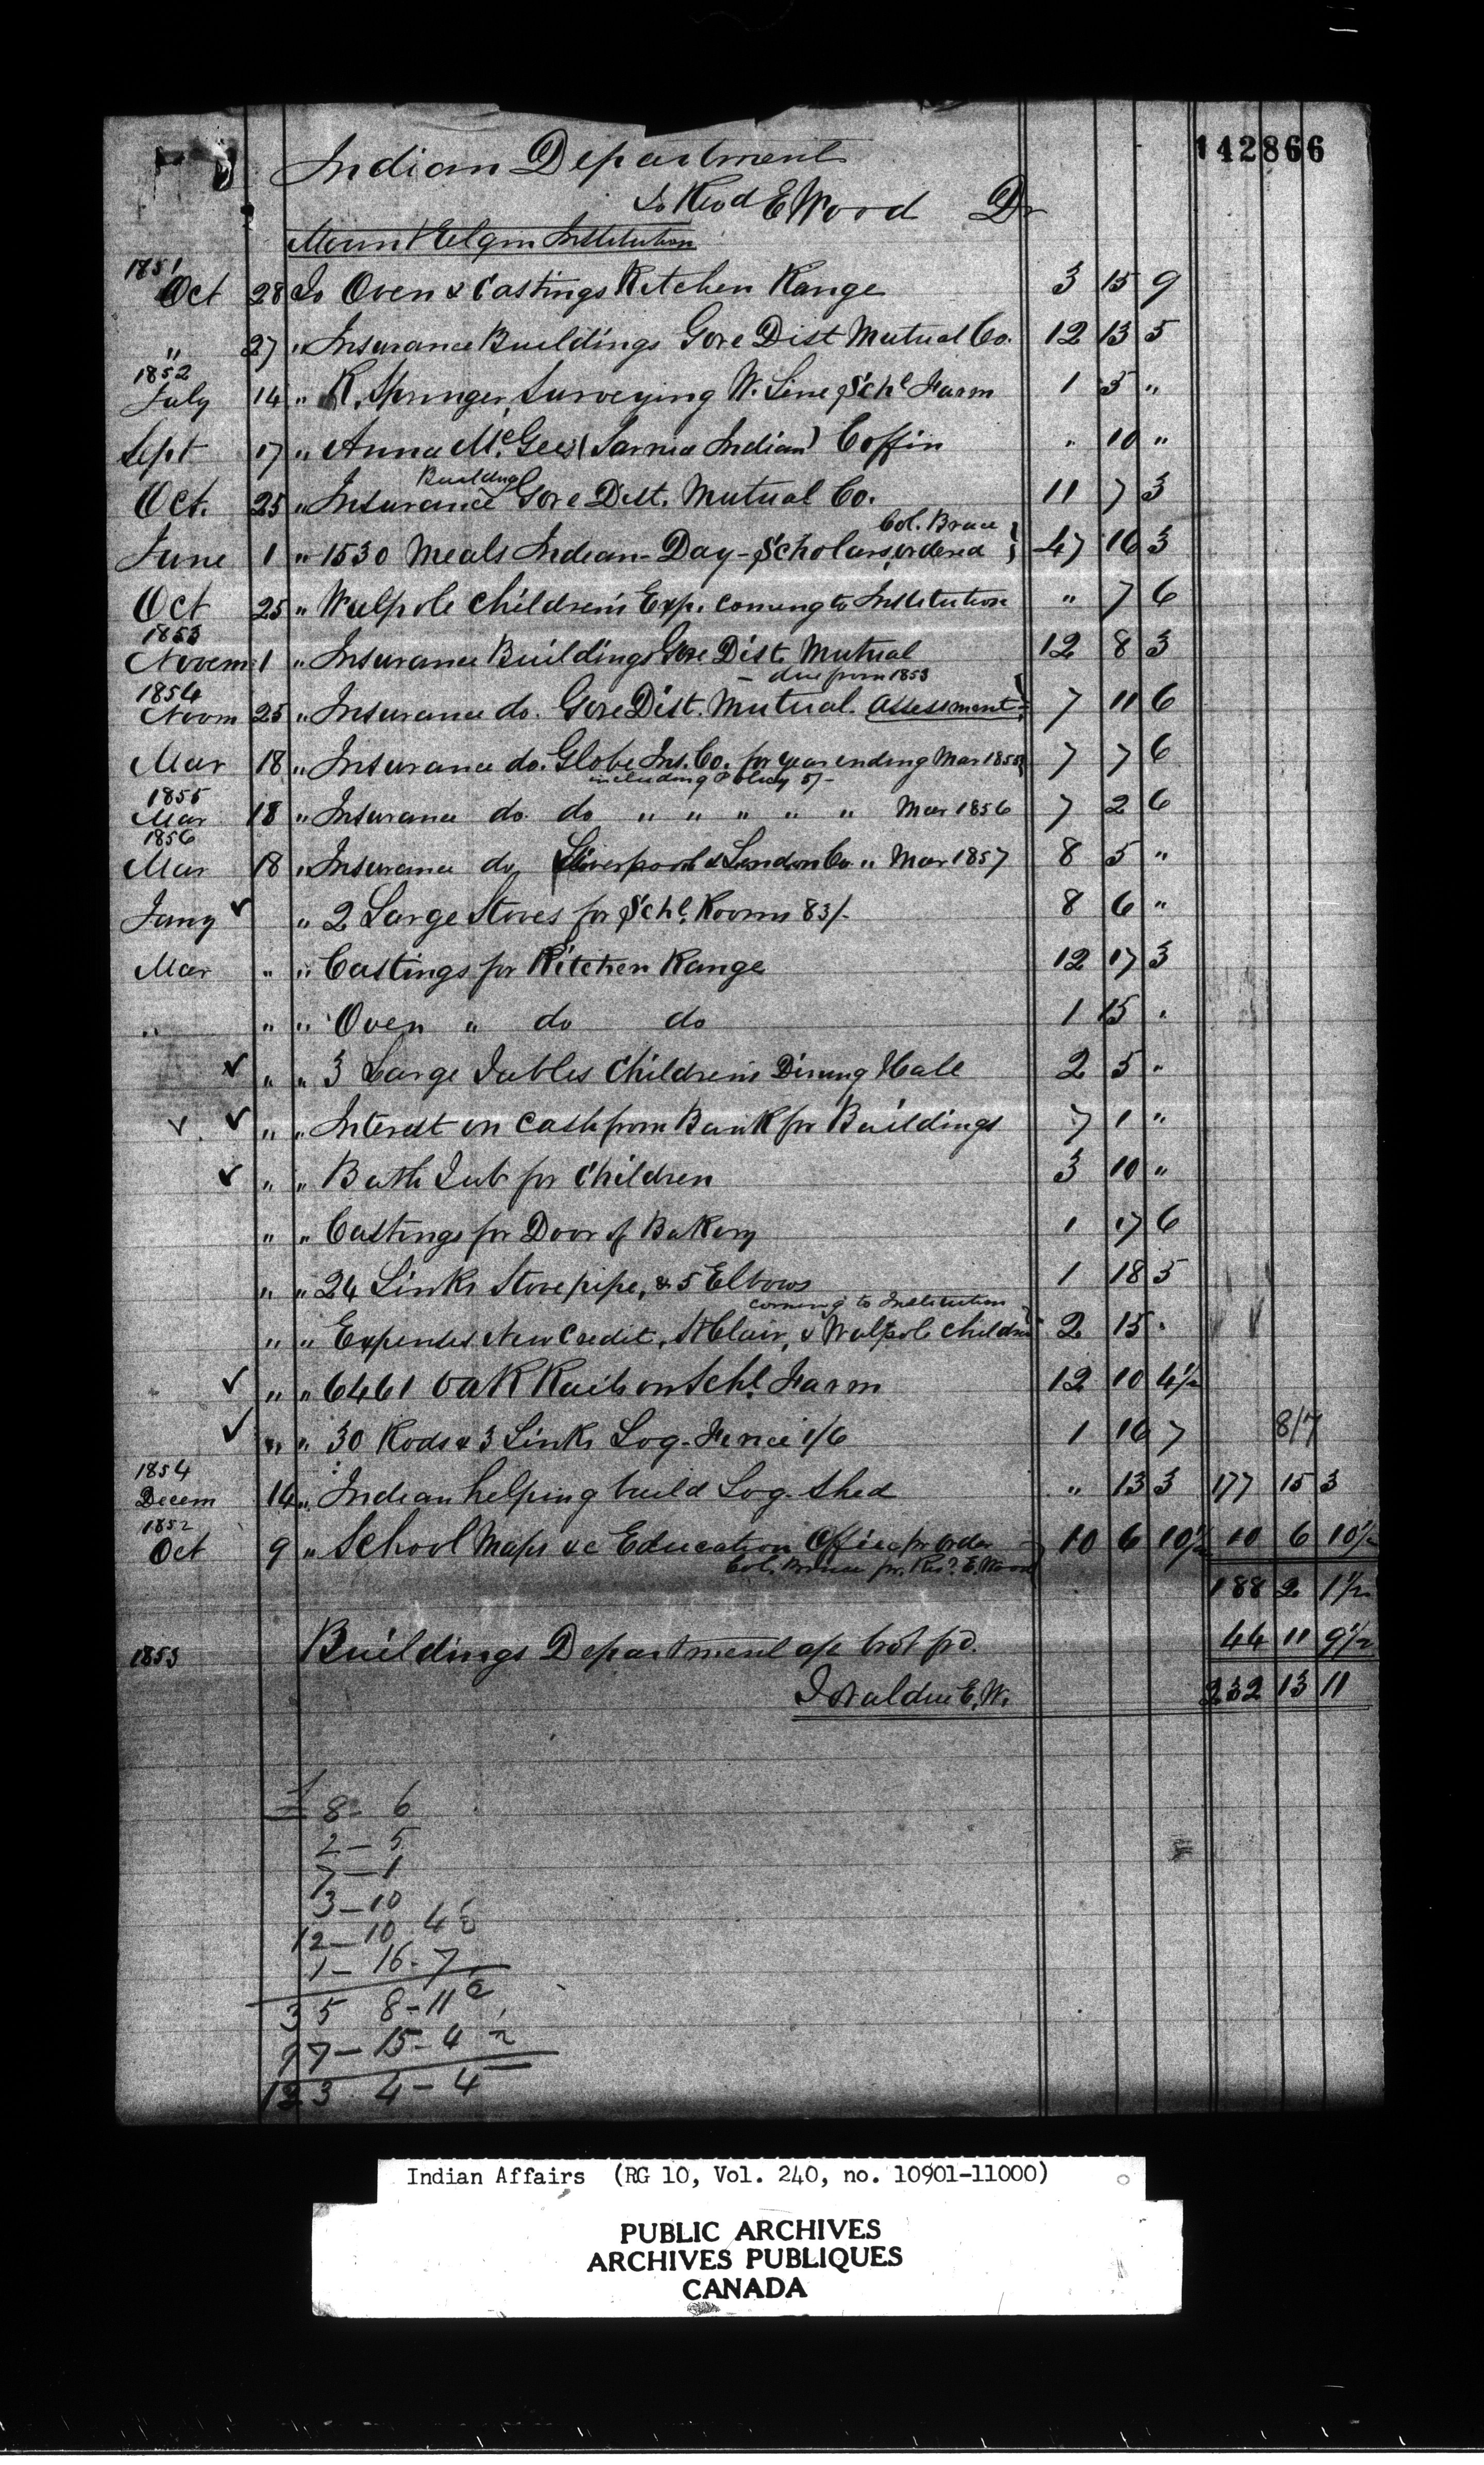 142866
Indian Department
To Revd E Wood Dr
Mount Elgin Institution
1851
Oct 28 To Oven & Castings Kitchen Range 3 15 9
" 27 " Insurance Buildings Gore Dist Mutual Co. 12 13 5
1852
July 14 " R. Springer, Surveying W. Line Schl Farm 1 5 "
Sept 17 " Anna McGees (Sarnia Indian) Coffin " 10 "
Building
Oct. 25 " Insurance Gore Dist. Mutual Co. 11 7 3
Col. Bruce
June 1 " 1530 Meals Indian-Day-Scholars, ordered } 47 16 3
Oct 25 " Walpole Children's Exp. coming to Institution " 7 6
1853
Novem 1 " Insurance Buildings Gore Dist. Mutual 12 8 3
- due from 1853
1854
Novm 25 " Insurance do. Gore Dist. Mutual. Assessment- } 7 11 6
Mar 18 " Insurance do. Globe Ins. Co. for year ending Mar 1855 } 7 7 6
including Policy 5/-
1855
Mar 18 " Insurance do. do " " " " " Mar 1856 7 2 6
1856
Mar 18 " Insurance do, Liverpool & London Co. " Mar 1857 8 5 "
Jany ✓ " 2 Large Stoves for Schl. Rooms 83/- 8 6 "
Mar " " Castings for Kitchen Range 12 17 3
" " " Oven " do do 1 15 "
✓ " " 3 Large Tables Children's Dining Hall 2 5 "
✓ ✓ " " Interest on Cash from Bank for Buildings 7 1 "
✓ " " Bath Tub for Children 3 10 "
" " Castings for Door of Bakery 1 17 6
" " 24 Links Stovepipe, & 5 Elbows 1 18 5
coming to Institution
" " Expenses New Credit, St Clair, & Walpole Children 2 15 "
✓ " " 6461 Oak Rails on Schl. Farm 12 10 4½
✓ " " 30 Rods & 3 Links Log-Fence 1/6 1 16 7 8/7
1854
Decem 14 " Indian helping build Log-Shed " 13 3 177 15 3
1852
Oct 9 " School Maps &c Education Office pr order } 10 6 10½ 10 6 10½
Col. Bruce pr. Revd. E. Wood
188 2 1½
1853 Buildings Department a/c brot fd. 44 11 9½
Total due E. W. 232 13 11
£
8- 6
2- 5
7-1
3-10
12-10 4
1- 16- 7
35 8-11
97- 15- 4
123 4- 4
Indian Affairs (RG 10, Vol. 240, no. 10901-11000)
PUBLIC ARCHIVES
ARCHIVES PUBLIQUES
CANADA